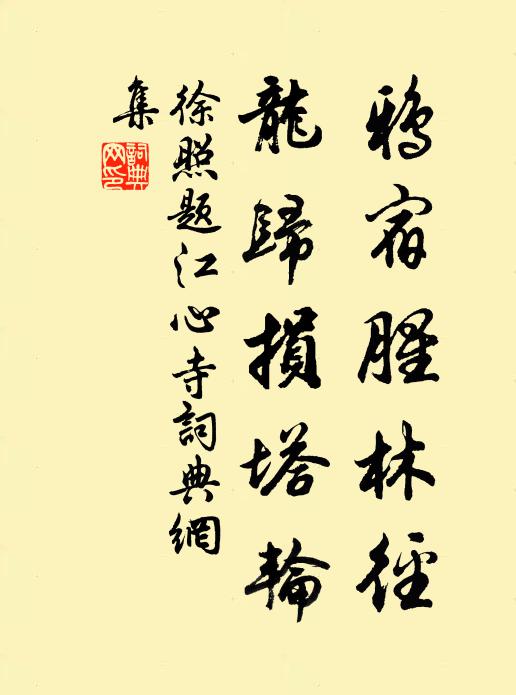 鴉宿腥林徑
龍歸損塔輪
徐照题江心寺詞典網
集
詞典
网印